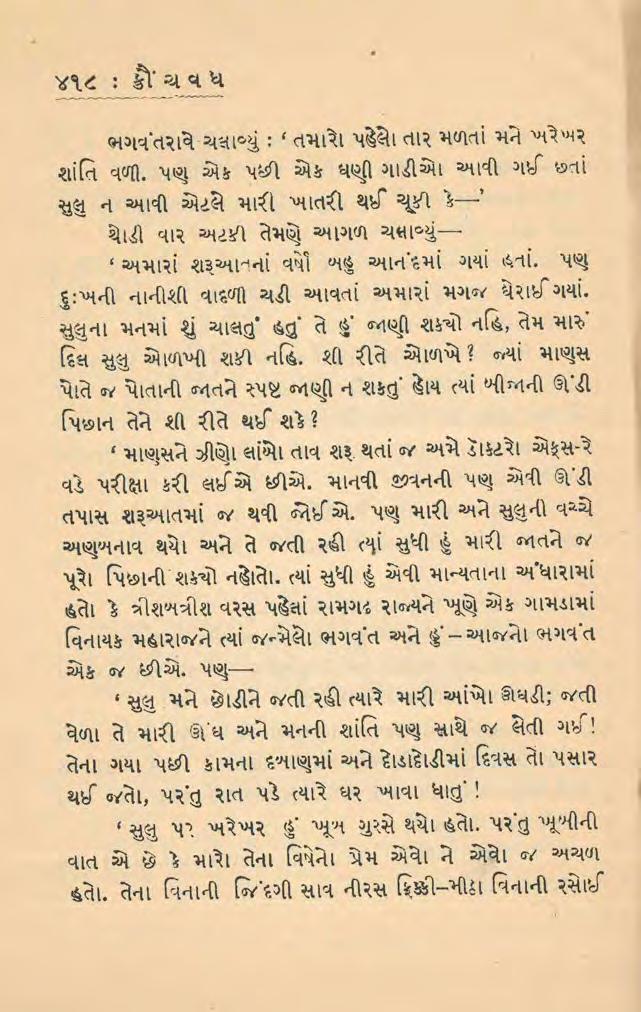 ૪૧૮ : ક્રૌંચવધ
ભગવંતરાવે ચલાવ્યું : ‘ તમારો પહેલો તાર મળતાં મને ખરેખર
શાંતિ વળી. પણ એક પછી એક ઘણી ગાડીઓ આવી ગઈ છતાં
સુલુ ન આવી એટલે મારી ખાતરી થઈ ચૂકી કે—’
થોડી વાર અટકી તેમણે આગળ ચલાવ્યું—
‘ અમારાં શરૂઆતનાં વર્ષો બહુ આનંદમાં ગયાં હતાં. પણ
દુઃખની નાનીશી વાદળી ચડી આવતાં અમારાં મગજ ઘેરાઈ ગયાં.
સુલુના મનમાં શું ચાલતું હતું તે હું જાણી શક્યો નહિ, તેમ મારું
દિલ સુલુ ઓળખી શકી નહિ. શી રીતે ઓળખે ? જ્યાં માણસ
પોતે જ પોતાની જાતને સ્પષ્ટ જાણી ન શકતું હોય ત્યાં બીજાની ઊંડી
પિછાન તેને શી રીતે થઈ શકે ?
‘ માણસને ઝીણો લાંબો તાવ શરૂ થતાં જ અમે ડૉક્ટરો એક્સ-રે
વડે પરીક્ષા કરી લઈએ છીએ. માનવી જીવનની પણ એવી ઊંડી
તપાસ શરૂઆતમાં જ થવી જોઈએ. પણ મારી અને સુલુની વચ્ચે
અણબનાવ થયો અને તે જતી રહી ત્યાં સુધી હું મારી જાતને જ
પૂરો પિછાની શક્યો નહોતો. ત્યાં સુધી હું એવી માન્યતાના અંધારામાં
હતો કે ત્રીશબત્રીશ વરસ પહેલાં રામગઢ રાજ્યને ખૂણે એક ગામડામાં
વિનાયક મહારાજને ત્યાં જન્મેલો ભગવંત અને હું – આજનો ભગવંત
એક જ છીએ. પણ—
‘ સુલુ મને છોડીને જતી રહી ત્યારે મારી આંખો ઊઘડી; જતી
વેળા તે મારી ઊંઘ અને મનની શાંતિ પણ સાથે જ લેતી ગઈ !
તેના ગયા પછી કામના દબાણમાં અને દોડાદોડીમાં દિવસ તો પસાર
થઈ જતો, પરંતુ રાત પડે ત્યારે ઘર ખાવા ધાતું !
‘ સુલુ પર ખરેખર હું ખૂબ ગુસ્સે થયો હતો. પરંતુ ખૂબીની
વાત એ છે કે મારો તેના વિષેનો પ્રેમ એવો ને એવો જ અચળ
હતો. તેના વિનાની જિંદગી સાવ નીરસ ફિક્કી–મીઠા વિનાની રસોઈ